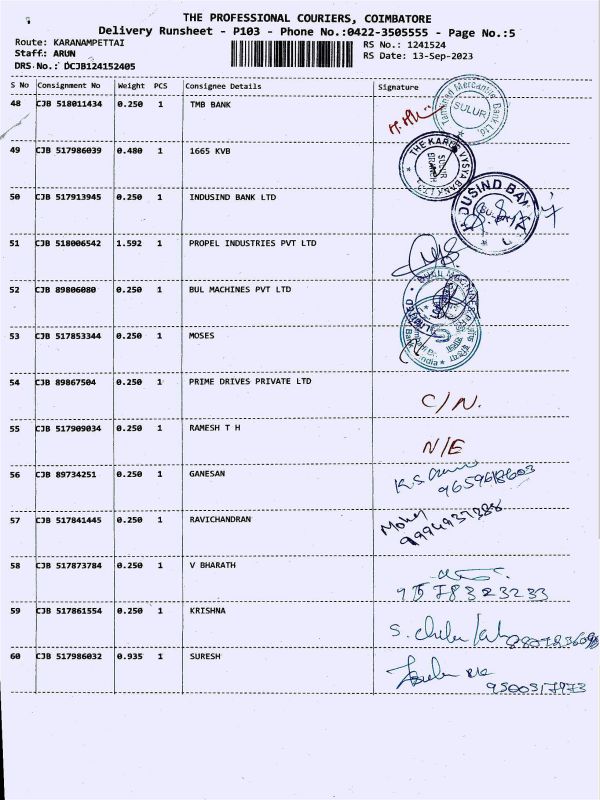 THE PROFESSIONAL COURIERS, COIMBATORE
Delivery Runsheet - P103 - Phone No.:0422-3505555 - Page No.:5
Route: KARANAMPETTAI
RS No.: 1241524
Staff: ARUN
RS Date: 13-Sep-2023
DRS No.: DCJB124152405
S No Consignment No Weight PCS Consignee Details Signature
48 CJB 518011434 0.250 1 TMB BANK
Tamilnad Mercantile Bank Ltd. SULUR
49 CJB 517986039 0.480 1 1665 KVB
THE KARUR VYSYA BANK LTD SULUR BRANCH
50 CJB 517913945 0.250 1 INDUSIND BANK LTD
INDUSIND BANK
51 CJB 518006542 1.592 1 PROPEL INDUSTRIES PVT LTD
52 CJB 89806080 0.250 1 BUL MACHINES PVT LTD
53 CJB 517853344 0.250 1 MOSES
54 CJB 89867504 0.250 1 PRIME DRIVES PRIVATE LTD
C/N.
55 CJB 517909034 0.250 1 RAMESH T H
N/E
56 CJB 89734251 0.250 1 GANESAN
K.S
9659618603
57 CJB 517841445 0.250 1 RAVICHANDRAN
58 CJB 517873784 0.250 1 V BHARATH
59 CJB 517861554 0.250 1 KRISHNA
60 CJB 517986032 0.935 1 SURESH